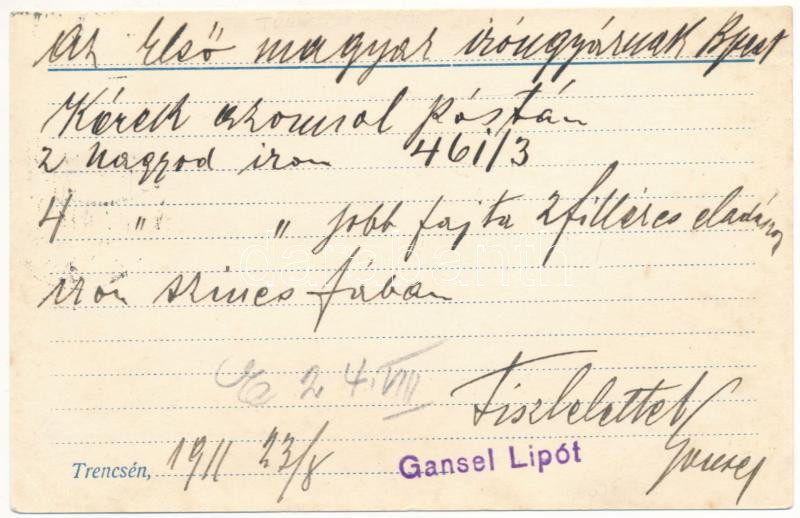 Az Első magyar irongyárnak Bpest
Kérek azonnal póstán
2 nagyod iron 461/3
4 " " jobb fajta 2 filléres eladásra
iron szines fában
24. VIII
Tisztelettel
Trencsén, 1911 23/8
Gansel Lipót
Gansel
darabanth